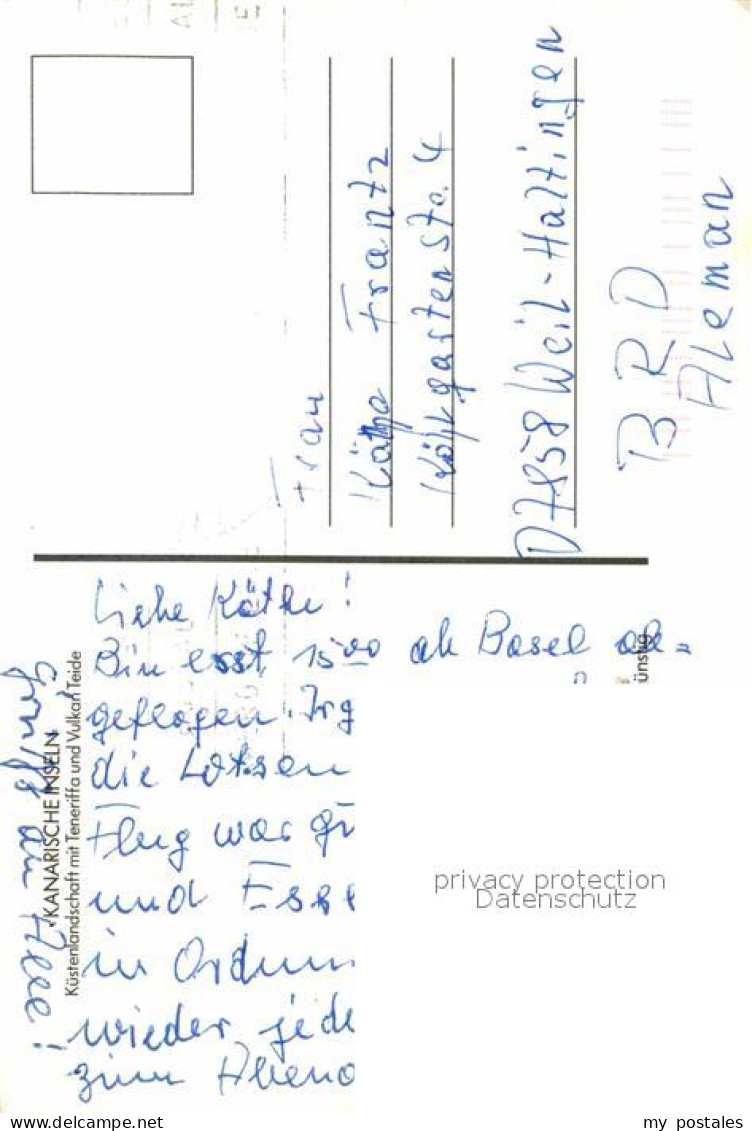 Frau
Käthe Frantz
gartenstr. 4
D7858 Weil-Haltingen
BRD
Aleman
Liebe Käthe!
Bin erst 15°° ab Basel ab=
geflogen. Irg
die Lotsen
Flug war gü
und Esse
in Ordnun
wieder jede
zum Abend
ünstig
KANARISCHE INSELN
Küstenlandschaft mit Teneriffa und Vulkan Teide
an Alle!
privacy protection
Datenschutz
my postales